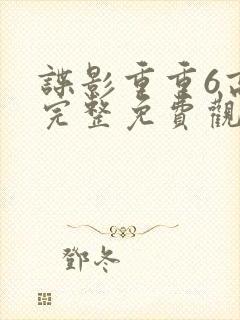 諜影重重6高
完整免費觀
鄧冬